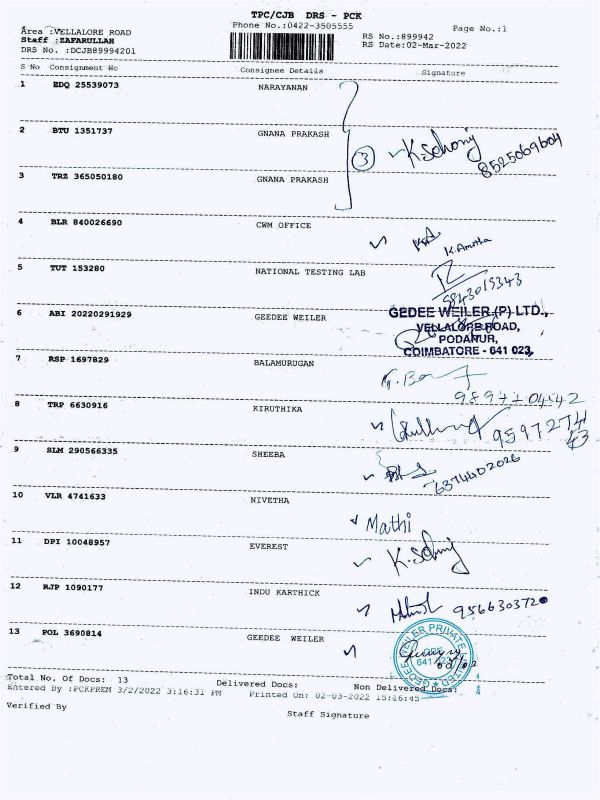 TPC/CJB DRS - PCK
Phone No.:0422-3505555
Page No.:1
Area :VELLALORE ROAD
Staff :ZAFARULLAH
DRS No. :DCJB89994201
RS No.:899942
RS Date:02-Mar-2022
S No Consignment No Consignee Details Signature
1 EDQ 25539073 NARAYANAN
2 BTU 1351737 GNANA PRAKASH
3 8525069604
3 TRZ 365050180 GNANA PRAKASH
4 BLR 840026690 CWM OFFICE
K.Amutha
5 TUT 153280 NATIONAL TESTING LAB
9843019343
6 ABI 20220291929 GEEDEE WEILER
GEDEE WEILER (P) LTD.,
VELLALORE ROAD,
PODANUR,
COIMBATORE - 641 023.
7 RSP 1697829 BALAMURUGAN
8 TRP 6630916 KIRUTHIKA
9597274
43
9 SLM 290566335 SHEEBA
6374402026
10 VLR 4741633 NIVETHA
Mathi
11 DPI 10048957 EVEREST
12 RJP 1090177 INDU KARTHICK
9566303720
13 POL 3690814 GEEDEE WEILER
GEDEE WEILER PRIVATE LIMITED
641 023
Total No. Of Docs: 13 Delivered Docs: Non Delivered Docs:
Entered By :PCKPREM 3/2/2022 3:16:31 PM Printed On: 02-03-2022 15:16:45
Verified By
Staff Signature